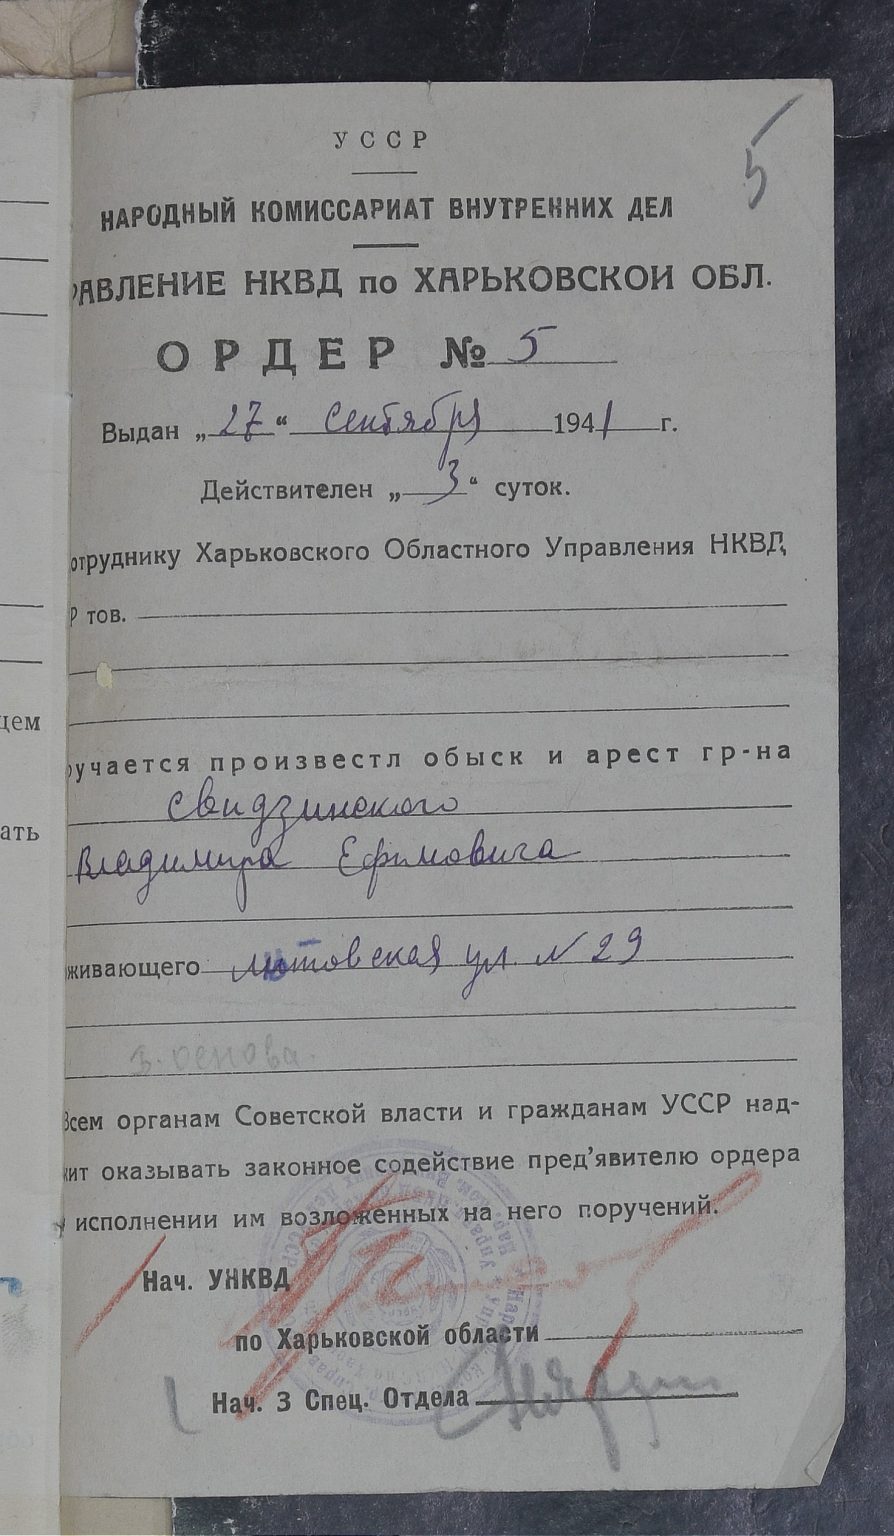 5
УССР
НАРОДНЫЙ КОМИССАРИАТ ВНУТРЕННИХ ДЕЛ
РАВЛЕНИЕ НКВД по ХАРЬКОВСКОИ ОБЛ.
ОРДЕР № 5
Выдан „27“ Сентября 1941 г.
Действителен „3“ суток.
отруднику Харьковского Областного Управления НКВД
Р тов.
учается произвестл обыск и арест гр-на
Свидзинского
Владимира Ефимовича
живающего Лютовская ул. N 29
основа.
Всем органам Советской власти и гражданам УССР над-
жит оказывать законное содействие пред’явителю ордера
исполнении им возложенных на него поручений.
Нач. УНКВД
по Харьковской области
Нач. 3 Спец. Отдела
щем
ать